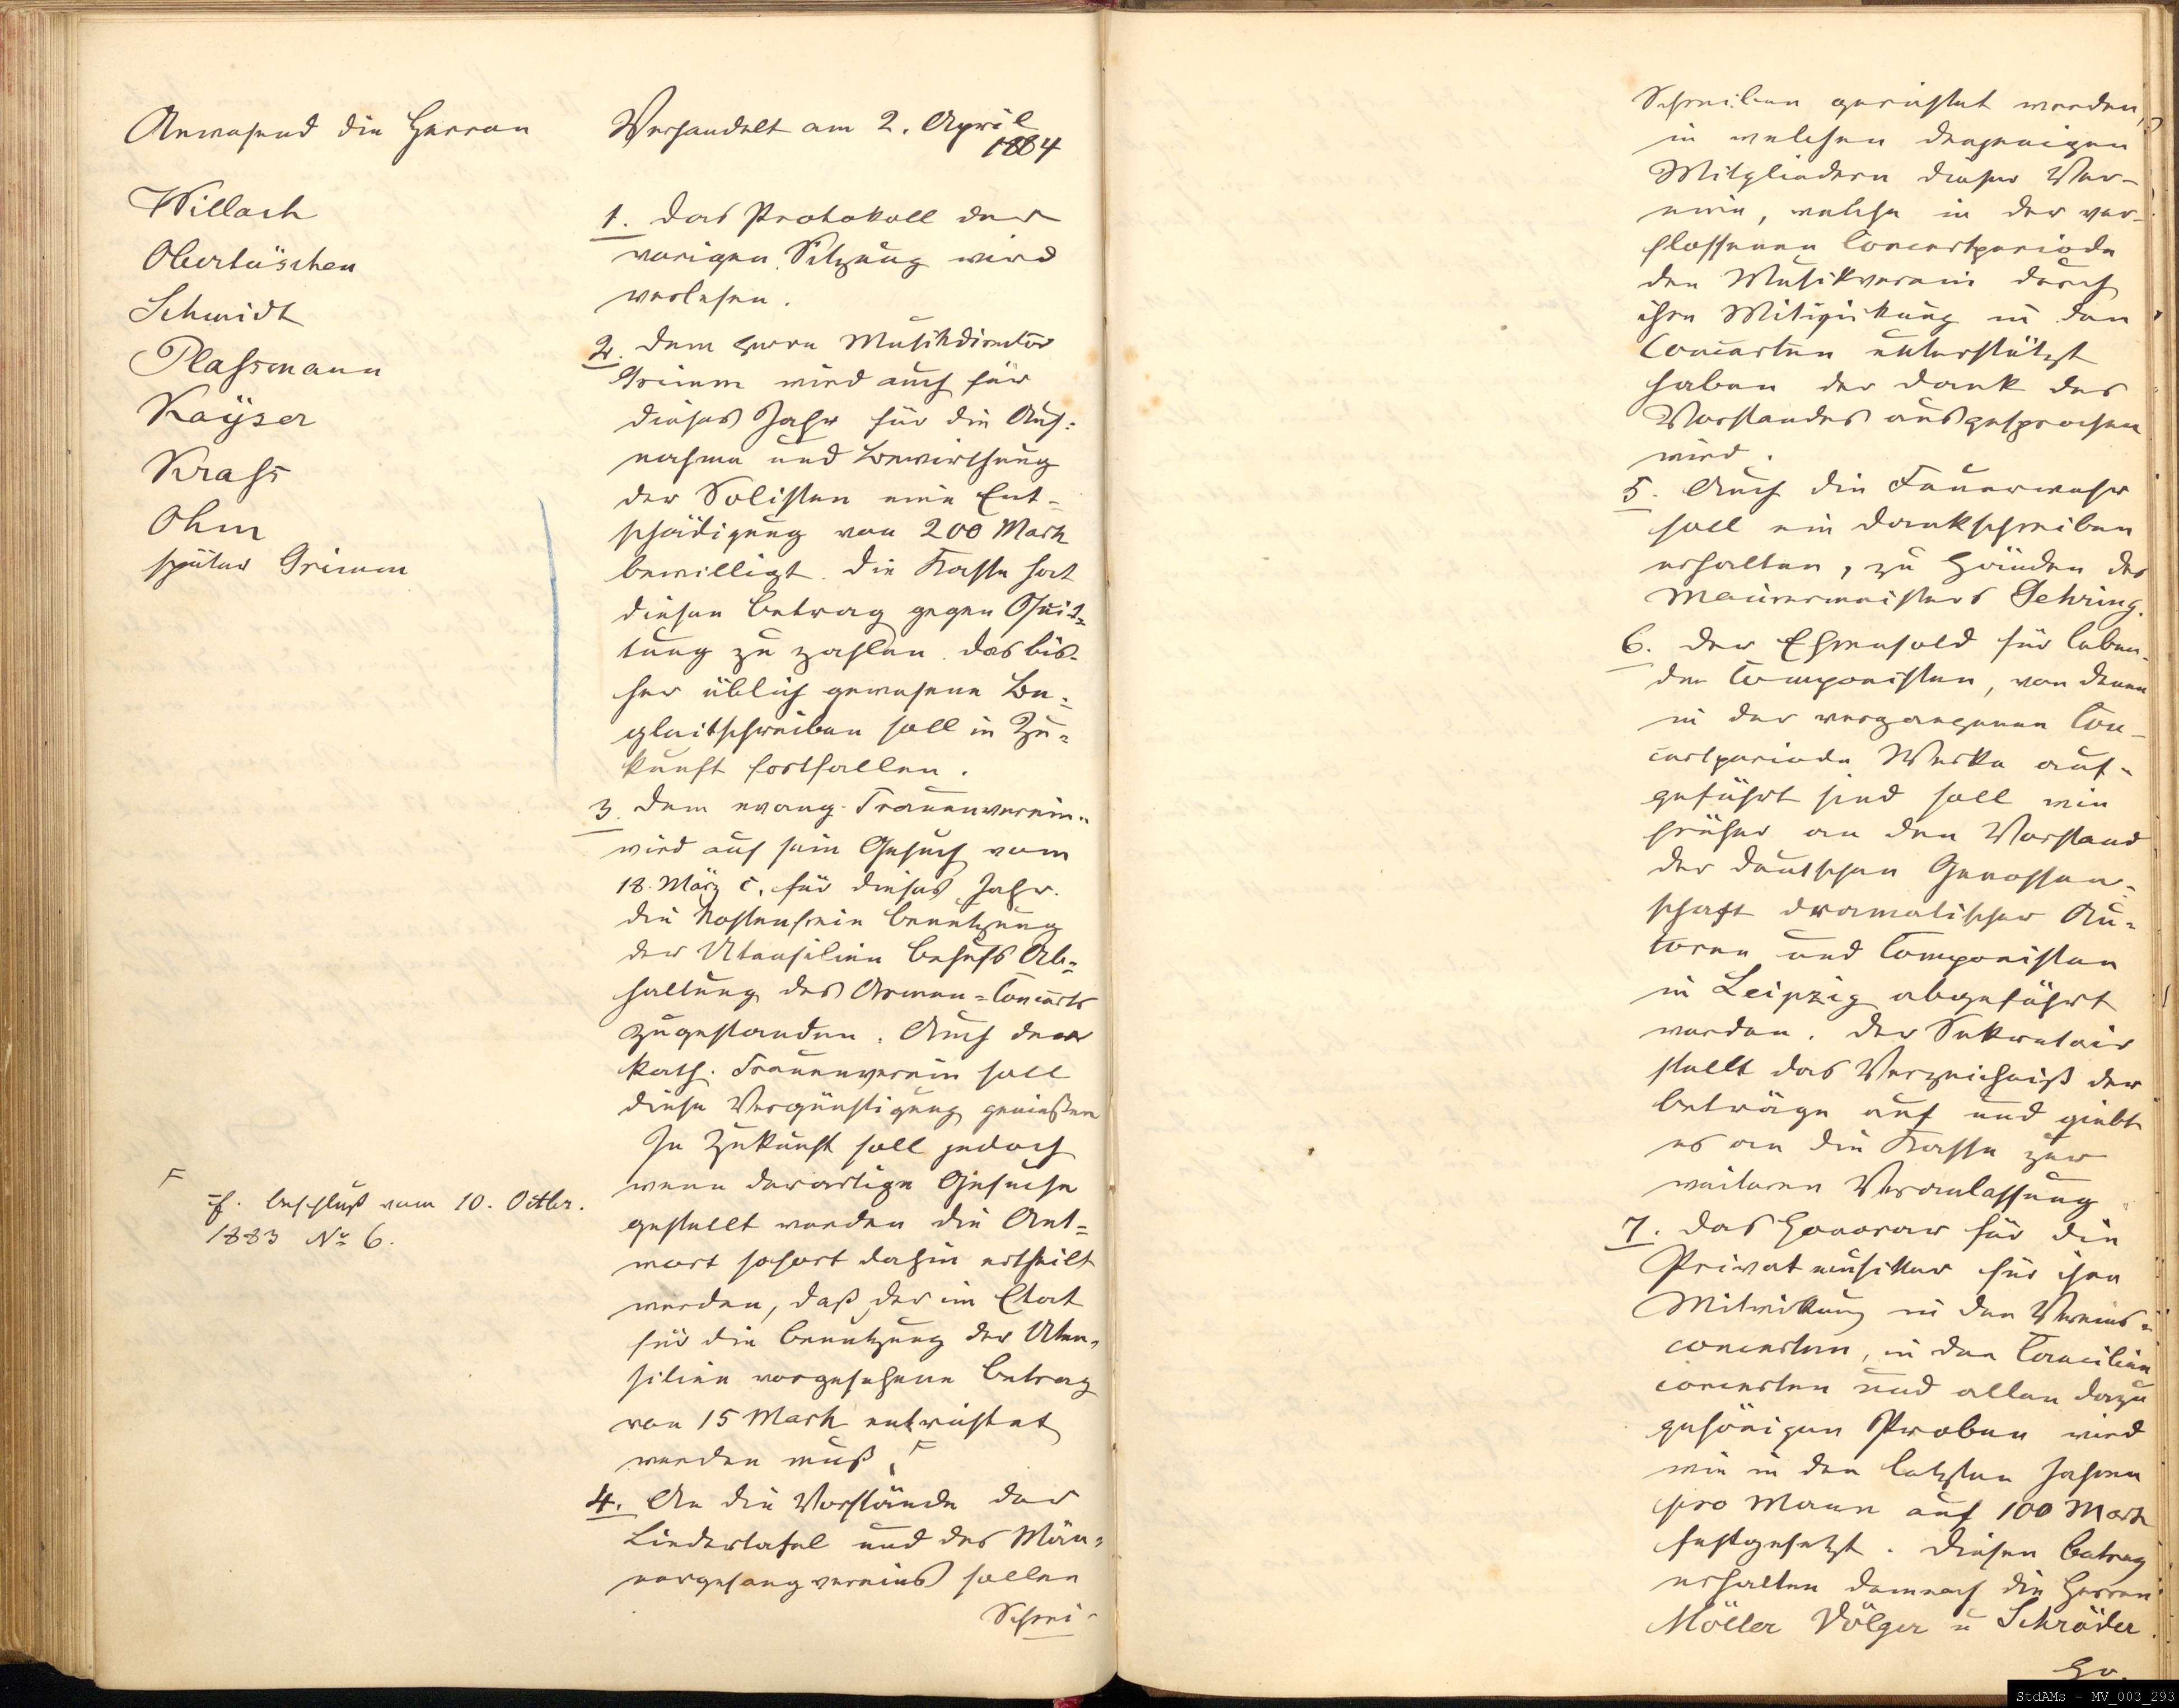 Anwesend die Herren
Willach
Obertüschen
Schmidt
Plassmann
Kayser
Krass
Ohm
später Grimm
F
cf. Beschluß vom 10. Octbr.
1883 No 6.
Verhandelt am 2. April
1884
1. Das Protokoll der
vorigen Sitzung wird
verlesen.
2. Dem Herrn Musikdirector
Grimm wird auch für
dieses Jahr für die Auf=
nahme und Bewirthung
der Solisten eine Ent=
schädigung von 200 Mark
bewilligt. Die Kasse hat
diesen Betrag gegen Quit=
tung zu zahlen. Das bis=
her üblich gewesene Be=
gleitschreiben soll in Zu=
kunft fortfallen.
3. Dem evang. Frauenverein
wird auf sein Gesuch vom
18. März c. für dieses Jahr
die kostenfreie Benutzung
der Utensilien behufs Ab=
haltung des Armen=Concerts
zugestanden. Auch der
kath. Frauenverein soll
diese Vergünstigung genießen
In Zukunft soll jedoch
wenn derartige Gesuche
gestellt werden die Ant=
wort sofort dahin ertheilt
werden, daß der im Etat
für die Benutzung der Uten=
silien vorgesehene Betrag
von 15 Mark entrichtet
werden muß. F
4. An die Vorstände der
Liedertafel und des Män=
nergesangvereins sollen
Schrei-
Schreiben gerichtet werden,
in welchen denjenigen
Mitgliedern dieser Ver=
eine, welche in der ver=
flossenen Concertperiode
den Musikverein durch
ihre Mitwirkung in den
Concerten unterstützt
haben der Dank des
Vorstandes ausgesprochen
wird.
5. Auch die Feuerwehr
soll ein Dankschreiben
erhalten, zu Händen des
Maurermeisters Gehring.
6. Der Ehrensold für leben=
de Componisten, von denen
in der vergangenen Con=
certperiode Werke auf=
geführt sind soll wie
früher an den Vorstand
der deutschen Genossen=
schaft dramatischer Au=
toren und Componisten
in Leipzig abgeführt
werden. Der Sekretair
stellt das Verzeichniß der
Beträge auf und giebt
es an die Kasse zur
weiteren Veranlassung
7. Das Honorar für die
Privatmusiker für ihre
Mitwirkung in den Vereins=
concerten, in den Caecilien
concerten und allen dazu
gehörigen Proben wird
wie in den letzten Jahren
pro Mann auf 100 Mark
festgesetzt. Diesen Betrag
erhalten demnach die Herren
Möller Völger u Schröder.
StdAMs - MV_003_293